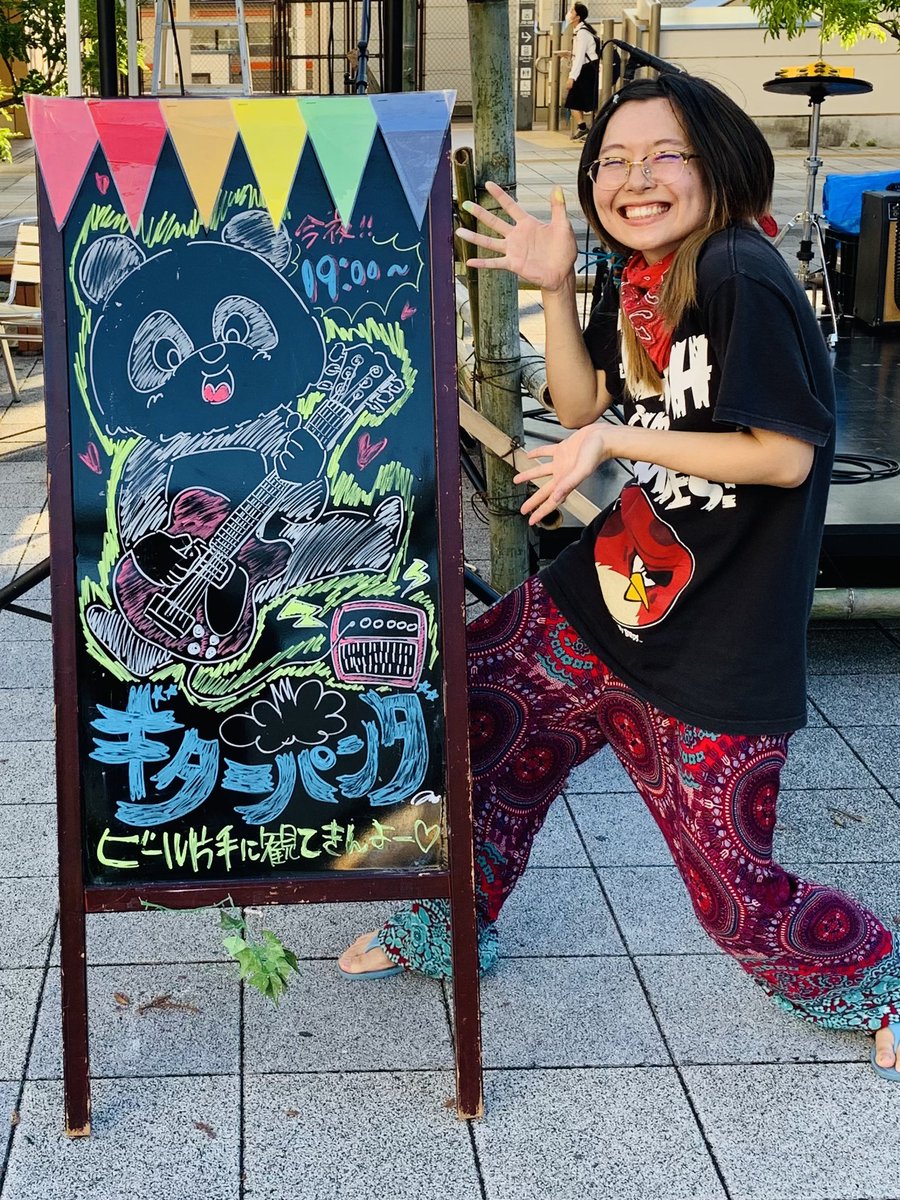 今夜!!
19:00〜
ギターパンダ
ビール片手に観てきんよー♡